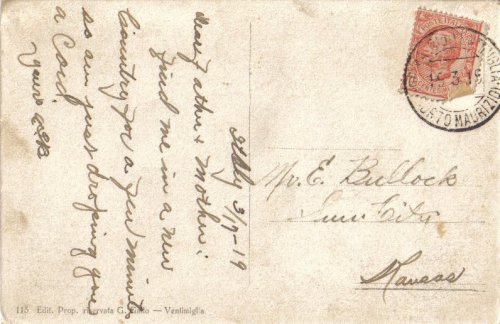 Italy 3/9-19
Dear Father & Mother:
find me in a new
Country for a few minutes
so am just droping you
a Card.
yours
Mr. E. Bullock
Sun City
Kansas
PORTO MAURIZIO
115 Edit. Prop. riservata G. — Ventimiglia